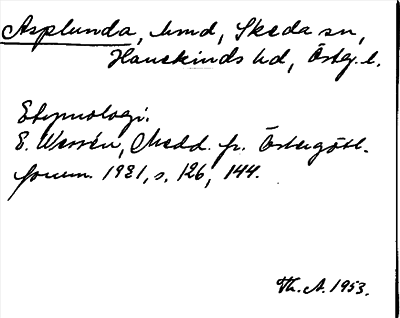 Asplunda, hmd, Skeda sn,
Hanekinds hd, Östg. l.
Etymologi.
E. Wessén, Medd. fr. Östergötl.
fornm. 1921, s. 126, 144.
Th. A. 1953.